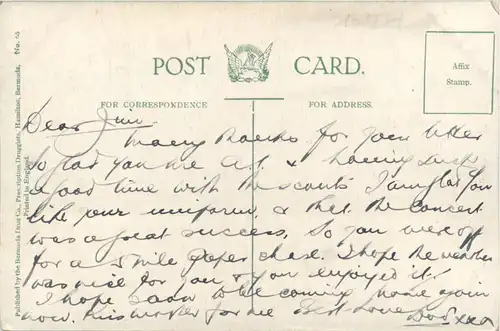 POST CARD.
FOR CORRESPONDENCE
FOR ADDRESS.
Affix
Stamp.
Published by the Bermuda Drug Co., Prescription Druggists, Hamilton, Bermuda. No. 55
Printed in England.
Dear Jim.
Many thanks for your letter
So glad you are a.1. & having such
a good time with the scouts I am glad you
like your uniform, & that the concert
was a great success, So you were off
for a 5 mile paper chase. I hope the weather
was nice for you & you enjoyed it.
I hope soon to be coming home again
now. Kiss mother for me Best Love Dad xxx